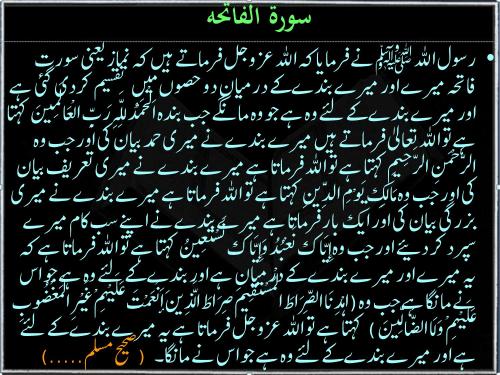 سورة الفاتحہ
• رسول اللہ ﷺ نے فرمایا کہ اللہ عزوجل فرماتے ہیں کہ نماز یعنی سورت
فاتحہ میرے اور میرے بندے کے درمیان دو حصوں میں تقسیم کر دی گئی ہے
اور میرے بندے کے لئے وہ ہے جو وہ مانگے جب بندہ الْحَمْدُ لِلَّهِ رَبِّ الْعَالَمِينَ کہتا
ہے تو اللہ تعالیٰ فرماتے ہیں میرے بندے نے میری حمد بیان کی اور جب وہ
الرَّحْمَنِ الرَّحِيمِ کہتا ہے تو اللہ فرماتا ہے میرے بندے نے میری تعریف بیان
کی اور جب وہ مَالِكِ يَوْمِ الدِّينِ کہتا ہے تو اللہ فرماتا ہے میرے بندے نے میری
بزرگی بیان کی اور ایک بار فرماتا ہے میرے بندے نے اپنے سب کام میرے
سپرد کر دیئے اور جب وہ إِيَّاكَ نَعْبُدُ وَإِيَّاكَ نَسْتَعِينُ کہتا ہے تو اللہ فرماتا ہے کہ
یہ میرے اور میرے بندے کے درمیان ہے اور بندے کے لئے وہ ہے جو اس
نے مانگا ہے جب وہ (اهْدِنَا الصِّرَاطَ الْمُسْتَقِيمَ صِرَاطَ الَّذِينَ أَنْعَمْتَ عَلَيْهِمْ غَيْرِ الْمَغْضُوبِ
عَلَيْهِمْ وَلَا الضَّالِّينَ) کہتا ہے تو اللہ عزوجل فرماتا ہے یہ میرے بندے کے لئے
ہے اور میرے بندے کے لئے وہ ہے جو اس نے مانگا۔ (صحیح مسلم.....)